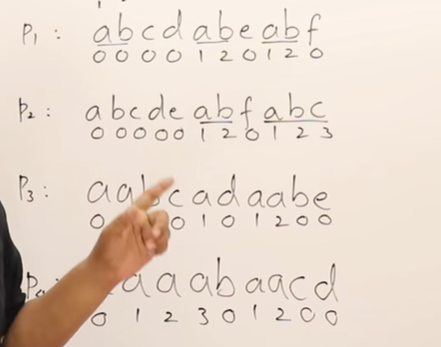 P₁ : a b c d a b e a b f
0 0 0 0 1 2 0 1 2 0
P₂ : a b c d e a b f a b c
0 0 0 0 0 1 2 0 1 2 3
P₃ : a a b c a d a a b e
0 0 1 0 1 2 0 0
a a a b a a c d
0 1 2 3 0 1 2 0 0